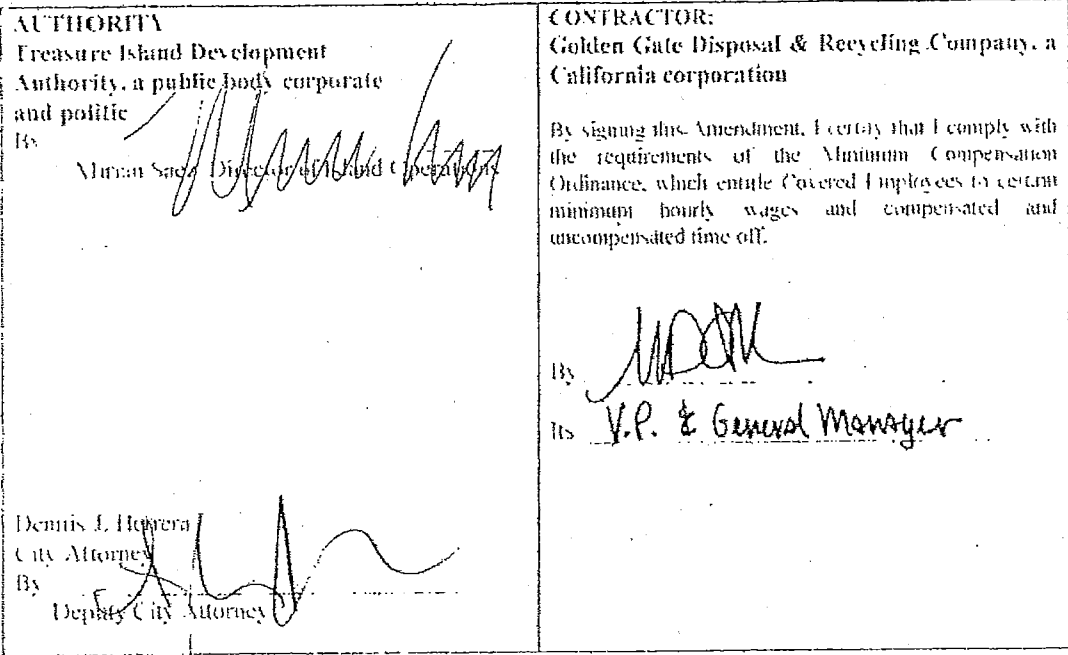 AUTHORITY
Treasure Island Development
Authority, a public body corporate
and politic
By
Mirian Saez Director of Island Operations
Dennis J. Herrera
City Attorney
By
Deputy City Attorney
CONTRACTOR:
Golden Gate Disposal & Recycling Company, a
California corporation
By signing this Amendment, I certify that I comply with
the requirements of the Minimum Compensation
Ordinance, which entitle Covered Employees to certain
minimum hourly wages and compensated and
uncompensated time off.
By
Its V.P. & General Manager